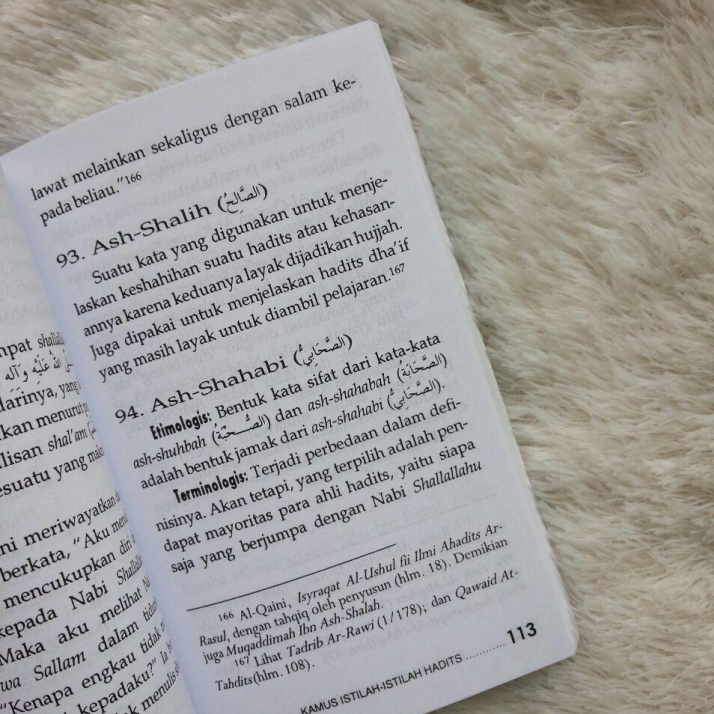 mpat shallal
darinya, yang
kan menurut
lisan shal'am
esuatu yang
ni meriwayatkan
berkata, "Aku
mencukupkan diri
kepada Nabi Shalla
Maka aku melihat
wa Sallam dalam
"Kenapa engkau tidak
t kepadaku?"
menulis
lawat melainkan sekaligus dengan salam ke-
pada beliau."166
93. Ash-Shalih (الصَّالِحُ)
Suatu kata yang digunakan untuk menje-
laskan keshahihan suatu hadits atau kehasan-
annya karena keduanya layak dijadikan hujjah.
Juga dipakai untuk menjelaskan hadits dha'if
yang masih layak untuk diambil pelajaran.167
94. Ash-Shahabi (الصَّحَابِيُّ)
Etimologis: Bentuk kata sifat dari kata-kata
ash-shuhbah (الصُّحْبَةُ) dan ash-shahabah (الصَّحَابَةُ)
adalah bentuk jamak dari ash-shahabi (الصَّحَابِيُّ).
Terminologis: Terjadi perbedaan dalam defi-
nisinya. Akan tetapi, yang terpilih adalah pen-
dapat mayoritas para ahli hadits, yaitu siapa
saja yang berjumpa dengan Nabi Shallallahu
166 Al-Qaini, Isyraqat Al-Ushul fii Ilmi Ahadits Ar-
Rasul, dengan tahqiq oleh penyusun (hlm. 18). Demikian
juga Muqaddimah Ibn Ash-Shalah.
167 Lihat Tadrib Ar-Rawi (1/178); dan Qawaid At-
Tahdits(hlm. 108).
KAMUS ISTILAH-ISTILAH HADITS............ 113